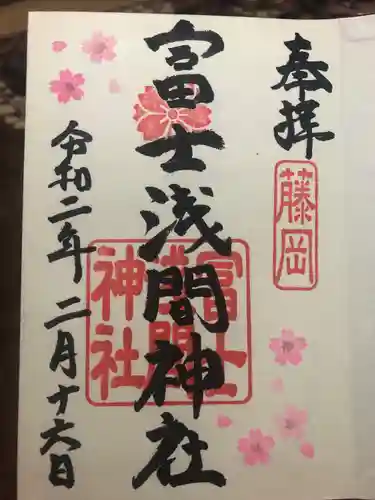 奉拝
藤岡
富士浅間神社
富士
浅間
神社
令和二年二月十六日